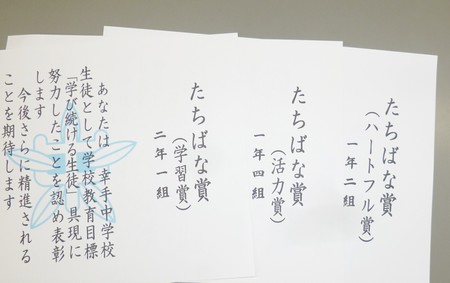 たちばな賞
（ハートフル賞）
一年二組
たちばな賞
（活力賞）
一年四組
たちばな賞
（学習賞）
二年一組
あなたは　幸手中学校
生徒として学校教育目標
「学び続ける生徒」具現に
努力したことを認め表彰
します
今後さらに精進される
ことを期待します